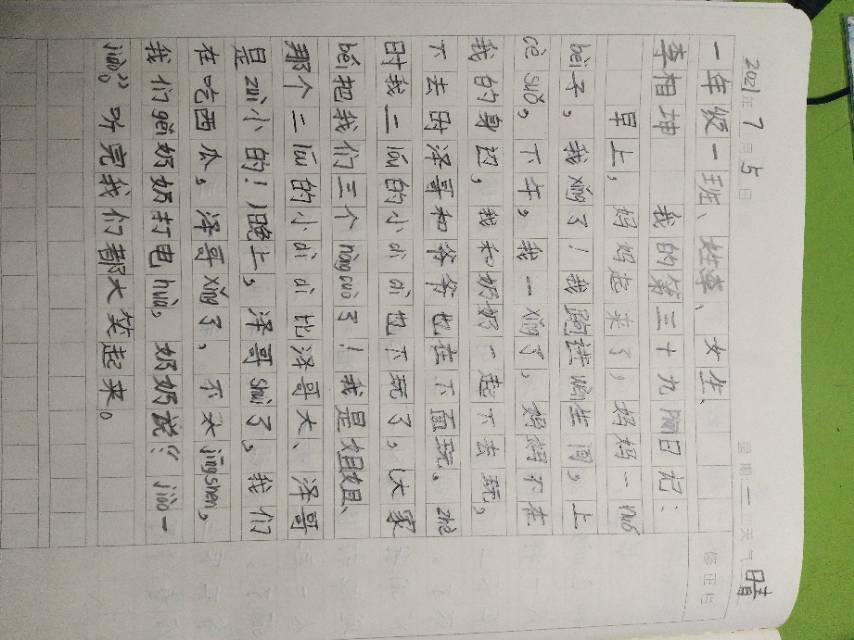 2021年7月5日 星期一 天气 晴
修正栏
一年级一班、姓李、女生、
李相坤 我的第三十九篇日记：
早上，妈妈起来了，妈妈一nuó
bèi子，我xǐng了！我跑进卫生间，上
cè suǒ，下午，我一xǐng了，妈妈不在
我的身边，我和奶奶一起下去玩，
下去时泽哥和爷爷也在下面玩。zhè
时我二lóu的小dì di也下玩了，大家
bèi把我们三个nòng cuò了！我是姐姐、
那个二lóu的小dì di比泽哥大、泽哥
是zuì小的！晚上，泽哥shuì了，我们
在吃西瓜，泽哥xǐng了，不太jīng shen，
我们gěi奶奶打电huà，奶奶说“jiào一
jiào”。听完我们都大笑起来。